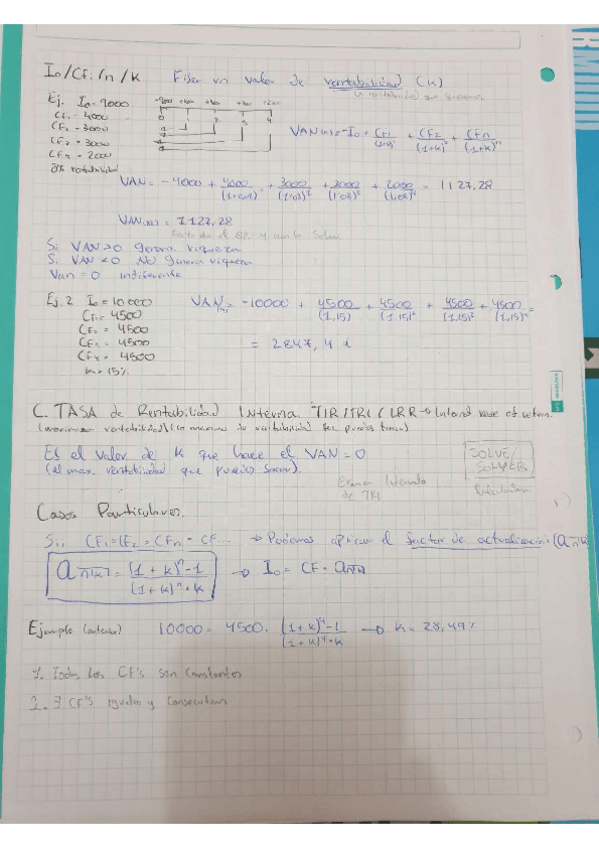 I₀ / CFi / n / k   Fijar un valor de rentabilidad (k)
la rentabilidad que queremos
Ej. I₀ = 9000
CF₁ = 4000
CF₂ = 3000
CF₃ = 3000
CF₄ = 2000
8% rentabilidad
0 1 2 3 4
VAN(k) = -I₀ + CF1/(1+k)¹ + CF2/(1+k)² + CFn/(1+k)ⁿ
VAN = -9000 + 4000/(1+0,08) + 3000/(1'08)² + 3000/(1'08)³ + 2000/(1'08)⁴ = 1127,28
VAN = 1127,28
Si VAN > 0 genera riqueza
Si VAN < 0 NO genera riqueza
Van = 0 indiferente
Ej. 2 I₀ = 10000
CF₁ = 4500
CF₂ = 4500
CF₃ = 4500
CF₄ = 4500
k = 15%
VAN = -10000 + 4500/(1,15) + 4500/(1,15)² + 4500/(1,15)³ + 4500/(1,15)⁴ =
= 2847,4
C. TASA de Rentabilidad Interna TIR / TRI / IRR → Internal rate of return.
Es el valor de K que hace el VAN = 0
(el max. rentabilidad que puedo sacar).
SOLVE/
SOLVER
Calculadora
Examen
de TRI
Casos Particulares.
Si: CF₁ = CF₂ = CFn = CF... → Podemos aplicar el factor de actualización (a n̅k̅
a n̅|k̅ = (1+k)ⁿ-1 / (1+k)ⁿ·k → I₀ = CF · a n̅k̅
Ejemplo (anterior) 10000 = 4500 · (1+k)⁴-1 / (1+k)⁴·k → k = 28,49%
1. Todos los CF's son constantes
2. ∃ CF's iguales y consecutivos